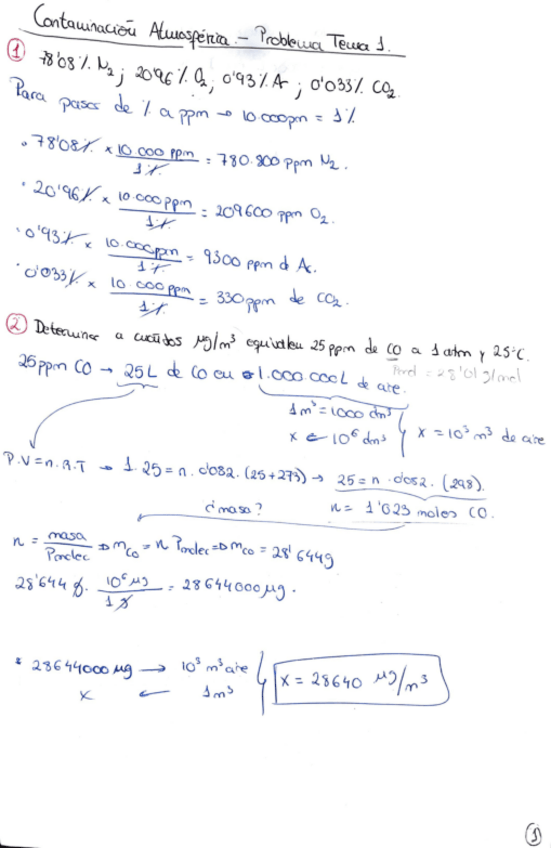 Contaminación Atmosférica. - Problema Tema 1.
① 78'08% N₂ ; 20'96% O₂ ; 0'93% A ; 0'033% CO₂.
Para pasar de % a ppm → 10.000ppm = 1%
· 78'08% × 10.000 ppm / 1% = 780.800 ppm N₂.
· 20'96% × 10.000ppm / 1% = 209600 ppm O₂.
· 0'93% × 10.000ppm / 1% = 9300 ppm d A.
· 0'033% × 10.000ppm / 1% = 330ppm de CO₂.
② Determine a cuántos μg/m³ equivalen 25 ppm de CO a 1 atm y 25°C.
Pmol = 28'01 g/mol
25ppm CO → 25L de CO en 1.000.000L de aire.
1m³ = 1000 dm³
x ← 10⁶ dm³ } x = 10³ m³ de aire
P.V=n.R.T → 1.25=n.0'082.(25+273) → 25=n.0'082.(298).
¿masa? n= 1'023 moles CO.
n = masa / Pmolec ⇒ mco = n Pmolec ⇒ mco = 28'644g
28'644 g. 10⁶ μg / 1 g = 28644000μg.
* 28644000 μg → 10³ m³ aire
x ← 1m³ } x = 28640 μg/m³
①